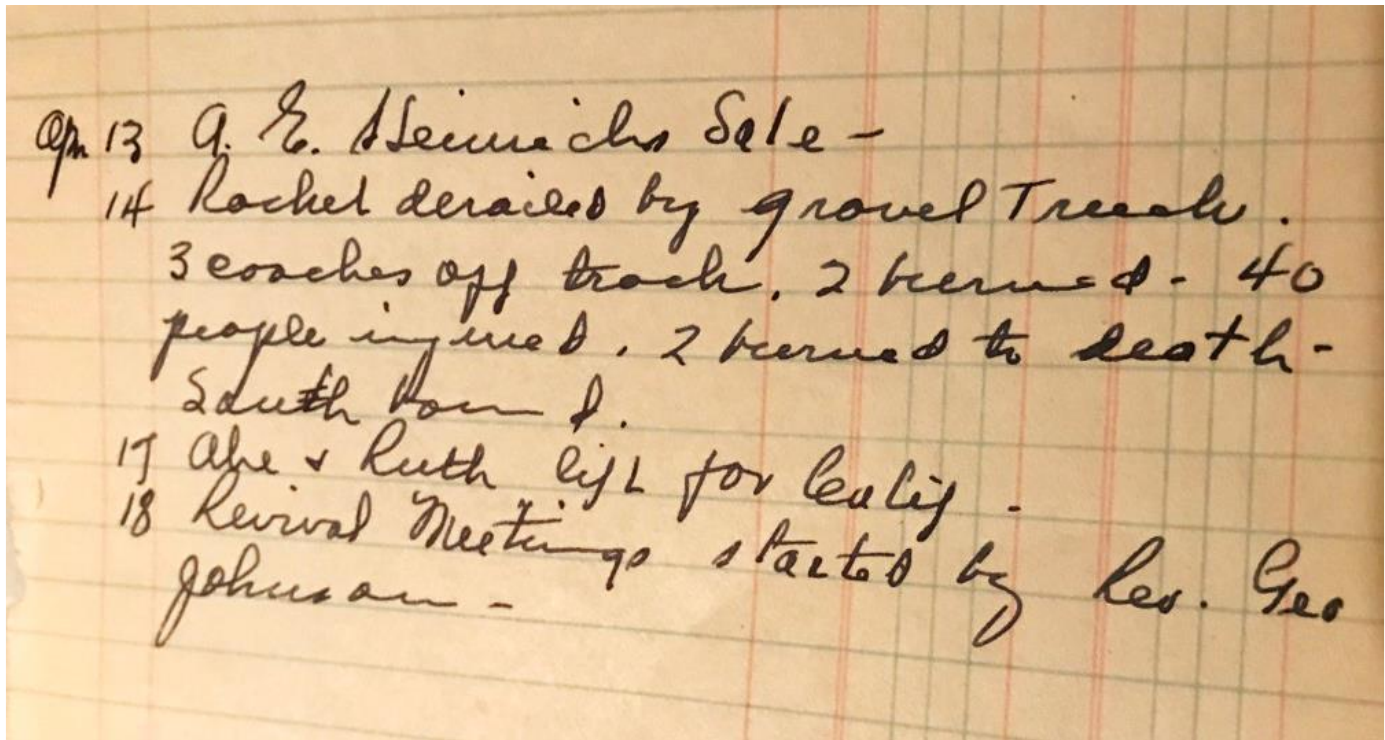 Apr 13 A. E. Heinrichs Sale -
14 Rocket derailed by gravel Truck.
3 coaches off track. 2 burned - 40
people injured. 2 burned to death -
South bound.
17 Abe & Ruth left for Calif.
18 Revival Meetings started by Rev. Geo
Johnson -